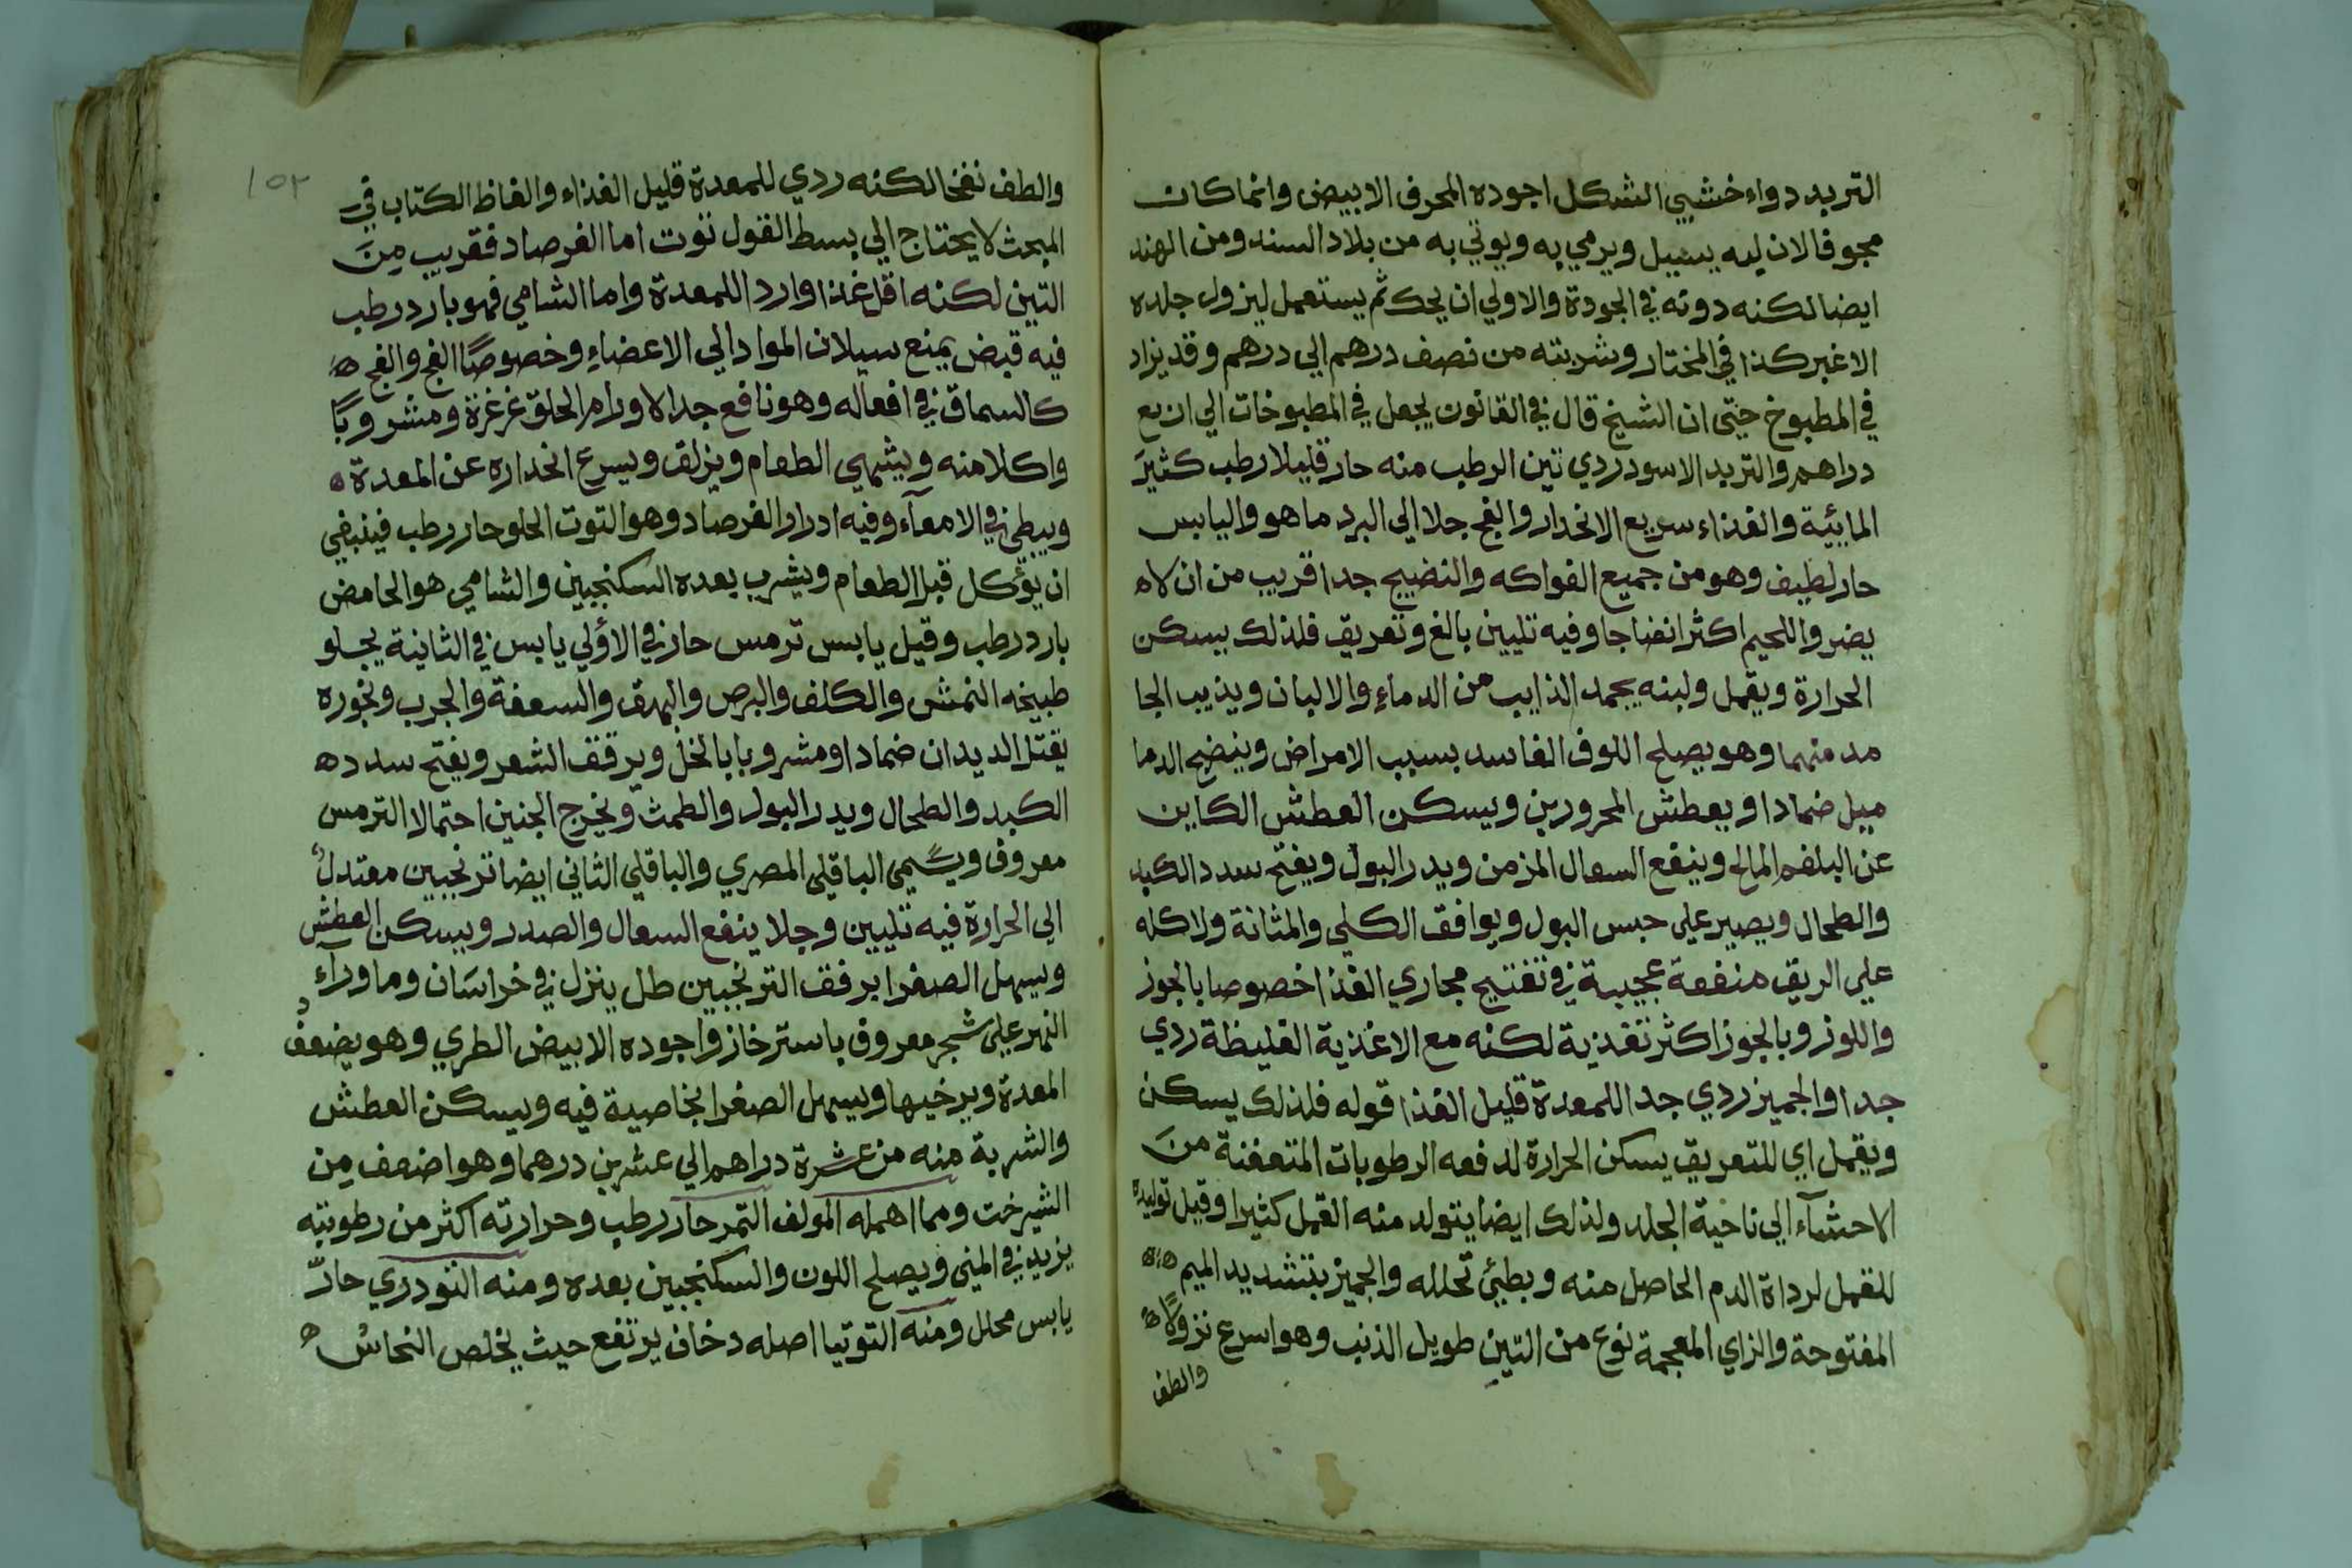 التربد دواء خشبي الشكل اجوده المحرف الابيض وانما كان
مجوفا لان لبه يسيل ويرمي به ويوتي به من بلاد السند ومن الهند
ايضا لكنه دونه في الجودة والاولي ان يحك ثم يستعمل ليزول جلده
الاغبر كذا في المختار وشربته من نصف درهم الي درهم وقد يزاد
في المطبوخ حتى ان الشيخ قال في القانون يجعل في المطبوخات الي اربع
دراهم والتربد الاسود ردي تين الرطب منه حار قليلا رطب كثيرَ
المايئية والغذاء سريع الانحدار والفج جلا الي البرد ما هو واليابس
حار لطيف وهو من جميع الفواكه والنضيج جدا قريب من ان لاه
يضر واللحيم اكثر انضاجا وفيه تليين بالغ وتعريق فلذلك يسكن
الحرارة ويقمل ولبنه يجمد الذايب من الدماءِ والالبان ويذيب الجا
مد منهما وهو يصلح اللون الفاسد بسبب الامراض وينضج الدما
ميل ضمادا ويعطش المحرورين ويسكن العطش الكاين
عن البلغم المالح وينفع السعال المزمن ويدر البول ويفتح سدد الكبد
والطحال ويصير علي حبس البول ويوافق الكلي والمثانة ولاكله
علي الريق منفعة عجيبة في تفتيح مجاري الغذا خصوصا بالجوز
واللوز وبالجوز اكثر تغذية لكنه مع الاغذية الغليظة ردي
جدا والجميز ردي جدا للمعدة قليل الغذا قوله فلذلك يسكن
ويقمل اي للتعريق يسكن الحرارة لدفعه الرطوبات المتعفنة منَ
الاحشآء الي ناحية الجلد ولذلك ايضا يتولد منه القمل كثيرا وقيل توليده
للقمل لرداة الدم الحاصل منه وبطيئ تحلله والجميز بتشديد الميم
المفتوحة والزاي المعجمة نوع من التين طويل الذنب وهو اسرع نزولًا
والطف
١٥٢
والطف نفخا لكنه ردي للمعدة قليل الغذاء والفاظ الكتاب في
المبحث لا يحتاج الي بسط القول توت اما الفرصاد فقريب مِنَ
التين لكنه اقل غذا واردا للمعدة واما الشامي فهو بارد رطب
فيه قبض يمنع سيلان المواد الي الاعضاءِ وخصوصًا الفج والفج
كالسماق في افعاله وهو نافع جدا لاورام الحلق غرغرة ومشروبًا
واكلا منه ويشهي الطعام ويزلق ويسرع انحداره عن المعدة
ويبطئ في الامعآء وفيه ادرار الفرصاد وهو التوت الحلو حار رطب فينبغي
ان يؤكل قبل الطعام ويشرب بعده السكنجبين والشامي هو الحامض
بارد رطب وقيل يابس ترمس حار في الاؤلي يابس في الثانية يجلو
طبيخه النمش والكلف والبرص والبهق والسعفة والجرب وبخوره
يقتل الديدان ضمادا ومشروبا بالخل ويرقق الشعر ويفتح سدد
الكبد والطحال ويدر البول والطمث ويخرج الجنين احتمالا الترمس
معروف ويسمى الباقلي المصري والباقلي الثاني ايضا ترنجبين معتدل
الي الحرارة فيه تليين وجلا ينفع السعال والصدر ويسكن العطش
ويسهل الصفرا برفق الترنجبين طل ينزل في خراسَان وما ورآء
النهر علي شجر معروف باسترخاز واجوده الابيض الطري وهو يضعف
المعدة ويرخيها ويسهل الصفرا بخاصية فيه ويسكن العطش
والشربة منه من عشرة دراهم الي عشرين درهما وهو اضعف مِن
الشيرخت ومما اهمله المولف التمر حار رطب وحرارته اكثر من رطوبته
يزيد في المني ويصلح اللون والسكنجبين بعده ومنه التودري حارّ
يابس محلل ومنه التوتيا اصله دخان يرتفع حيث يخلص النحاسُ